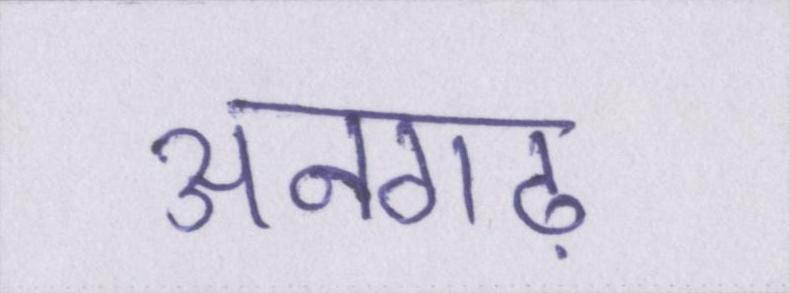 अनगढ़